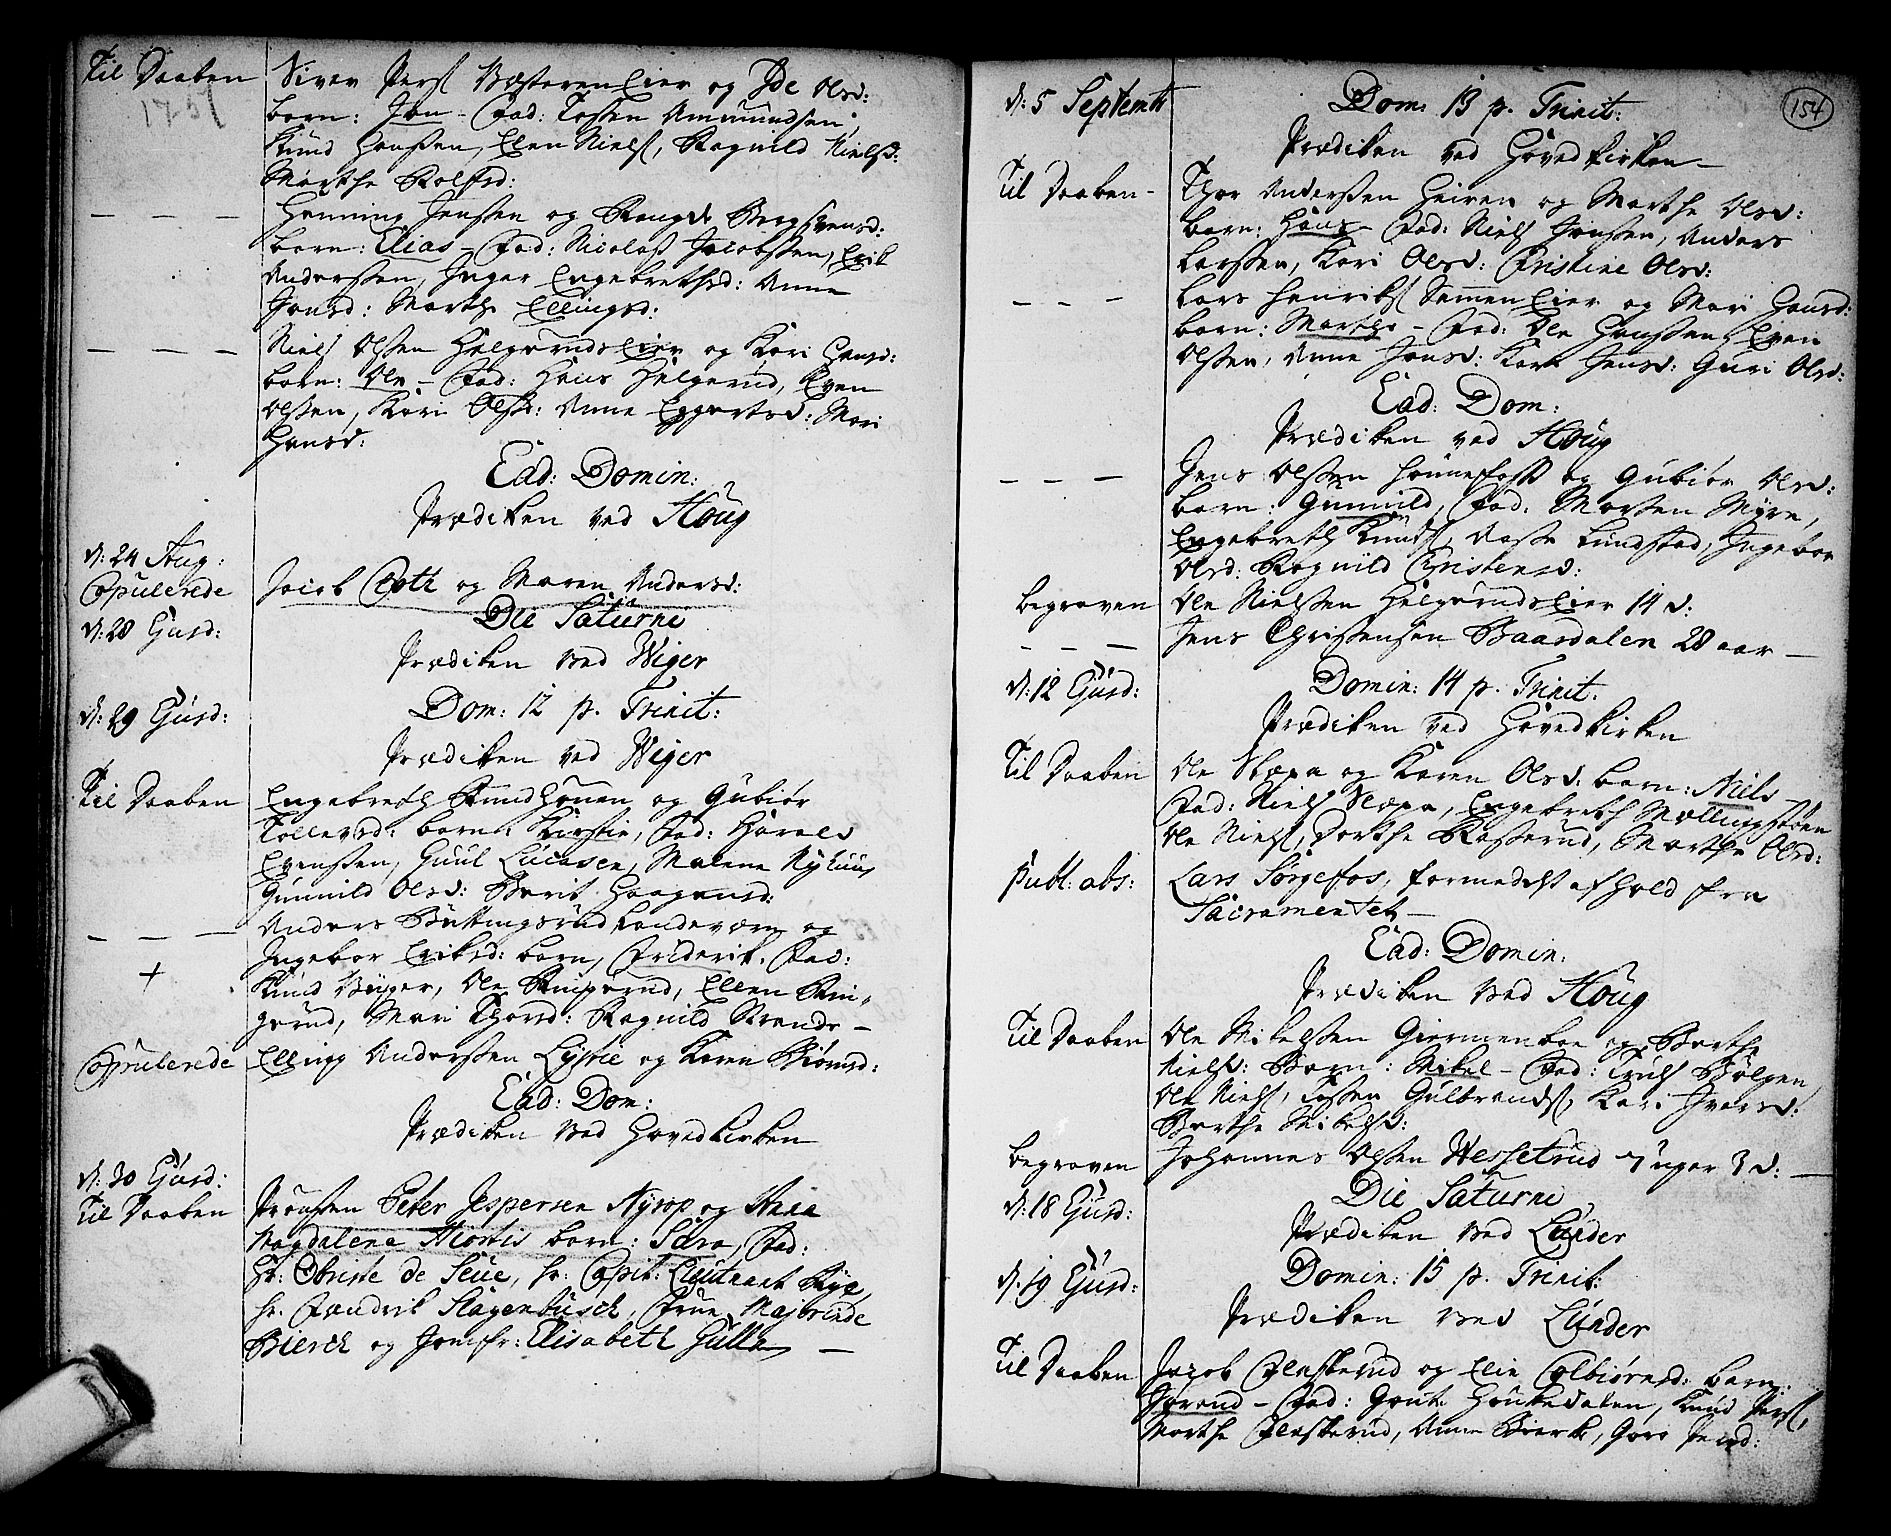 Til Daaben Siver Pers Væsteren Eier og Ide Olsd:
barn: Jon - Fad: Tosten Ammundsen,
Knud Hansen, Ellen Niels, Ragnild Nielsd:
Marthe Rolfsd:
— — — Henning Jensen og Rangdi Bergsvensd:
barn: Elias - Fad: Nicolas Jacobsen, Erik
Andersen, Inger Engebrethsd: Anne
Hansd: Marthe Ellingsd:
— — — Niels Olsen Helgerudseier og Kari Hansd:
barn: Ole - Fad: Hans Helgerud, Even
Olsen, Kari Olsd: Anne Eggertsd: Mari
Hansd:
Ead: Domin:
Prædiken ved Houg
d: 24 Aug:
Copulerede Jacob Coth og Maren Andersd:
d: 28 Ejusd: Die Saturni
Prædiken ved Wiger
d: 29 Ejusd: Dom: 12 p. Trinit:
Prædiken ved Wiger
Til Daaben Engebreth og Gubiør
Tollevsd: barn: Kirstie, Fad: Harald
Evensen, Guul Lucasen, Malene Nyhuus
Gunnild Olsd: Berit Haagensd:
— — — Anders Buttingsrud Landeværn og
Ingebor Eriksd: barn, Friderik. Fad:
+ Knud Ole Ringerud, Ellen Rin-
gerud, Mari Thorsd: Ragnild Strande -
Copulerede Elling Andersen Lystie og Karen Biørnsd:
Ead: Dom:
Prædiken ved Hovedkirken
d: 30 Ejusd:
Til Daaben Peter Jespersen Nyrop og Anna
Magdalena Hiortis barn: Sara, Fad:
Hr: Obriste de Seue, hr: Capit: Lieutnant Rye,
hr. Fændrik Slagenbusch, Frue Majorinde
Bierch og Jomfr: Elisabeth Gulle —
154
d: 5 Septemb Dom: 13 p. Trinit:
Prædiken ved Hovedkirken —
Til Daaben - Thor Andersen Heiren og Marthe Olsd:
barn: Hans - Fad: Niels Hansen, Anders
Larsen, Kari Olsd: Kristine Olsd:
— — — Lars Henriks Semmen Eier og Mari Hansd:
barn: Marthe - Fad: Ole Hansen, Even
Olsen, Anne Jonsd: Kari Jensd: Guri Olsd:
Ead: Dom:
Prædiken ved Houg
— — — Jens Olsen Hønnefoss og Gubiør Olsd:
barn: Gunnild, Fad: Morten Myre,
Engebreth Knuds, Lundstad, Ingebor
Olsd: Ragnild Christensd:
begraven Ole Nielsen Helgerudseier 14 d:
— — — Jens Christensen Baardalen 28 aar —
d: 12 Ejusd: Domin: 14 p. Trinit:
Prædiken ved Hovedkirken
Til Daaben Ole Væxa og Karen Olsd: barn: Niels
Fad: Niels Væxa, Engebreth Mællingstøen
Ole Niels, Dorthe Rasserud, Marthe Olsd:
Publ: abs: Lars Sørgefos, formedelst afhold fra
Sacramentet —
Ead: Domin:
Prædiken ved Houg
Til Daaben Ole Mikelsen Giermenboe og Berthe
Nielsd: Barn: Mikel - Fad: Truls Bølgen,
Ole Niels, Tosten Gulbrands, Kari Iversd:
Berthe Mikelsd:
begraven Johannes Olsen Wessetrud 7 uger 3 d: —
d: 18 Ejusd: Die Saturni
Prædiken ved Lunder
d: 19 Ejusd: Domin: 15 p. Trinit:
Prædiken ved Lunder
Til Daaben Jacob Flaskerud og Elie Colbiørnsd: barn:
Jørand - Fad: Goute Houkedalen, Knud Pers,
Marthe Flaskerud, Anne Bierke, Goro